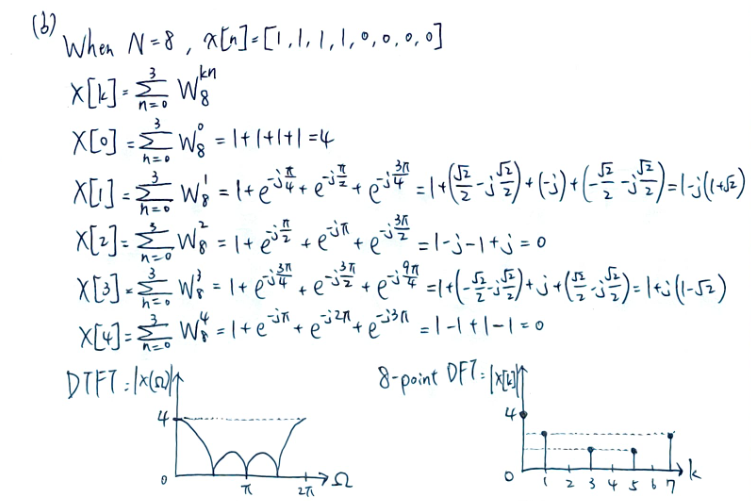 (b)
When N=8, x[n]=[1,1,1,1,0,0,0,0]
X[k]=∑_{n=0}^{3} W_8^{kn}
X[0]=∑_{n=0}^{3} W_8^0 = 1+1+1+1=4
X[1]=∑_{n=0}^{3} W_8^1 = 1+e^{-jπ/4}+e^{-jπ/2}+e^{-j3π/4} = 1+(√2/2-j√2/2)+(-j)+(-√2/2-j√2/2)=1-j(1+√2)
X[2]=∑_{n=0}^{3} W_8^2 = 1+e^{-jπ/2}+e^{-jπ}+e^{-j3π/2} = 1-j-1+j = 0
X[3]=∑_{n=0}^{3} W_8^3 = 1+e^{-j3π/4}+e^{-j3π/2}+e^{-j9π/4} = 1+(-√2/2-j√2/2)+j+(√2/2-j√2/2)=1+j(1-√2)
X[4]=∑_{n=0}^{3} W_8^4 = 1+e^{-jπ}+e^{-j2π}+e^{-j3π} = 1-1+1-1=0
DTFT: |X(Ω)|
4
0 π 2π Ω
8-point DFT: |X[k]|
4
0 1 2 3 4 5 6 7 k